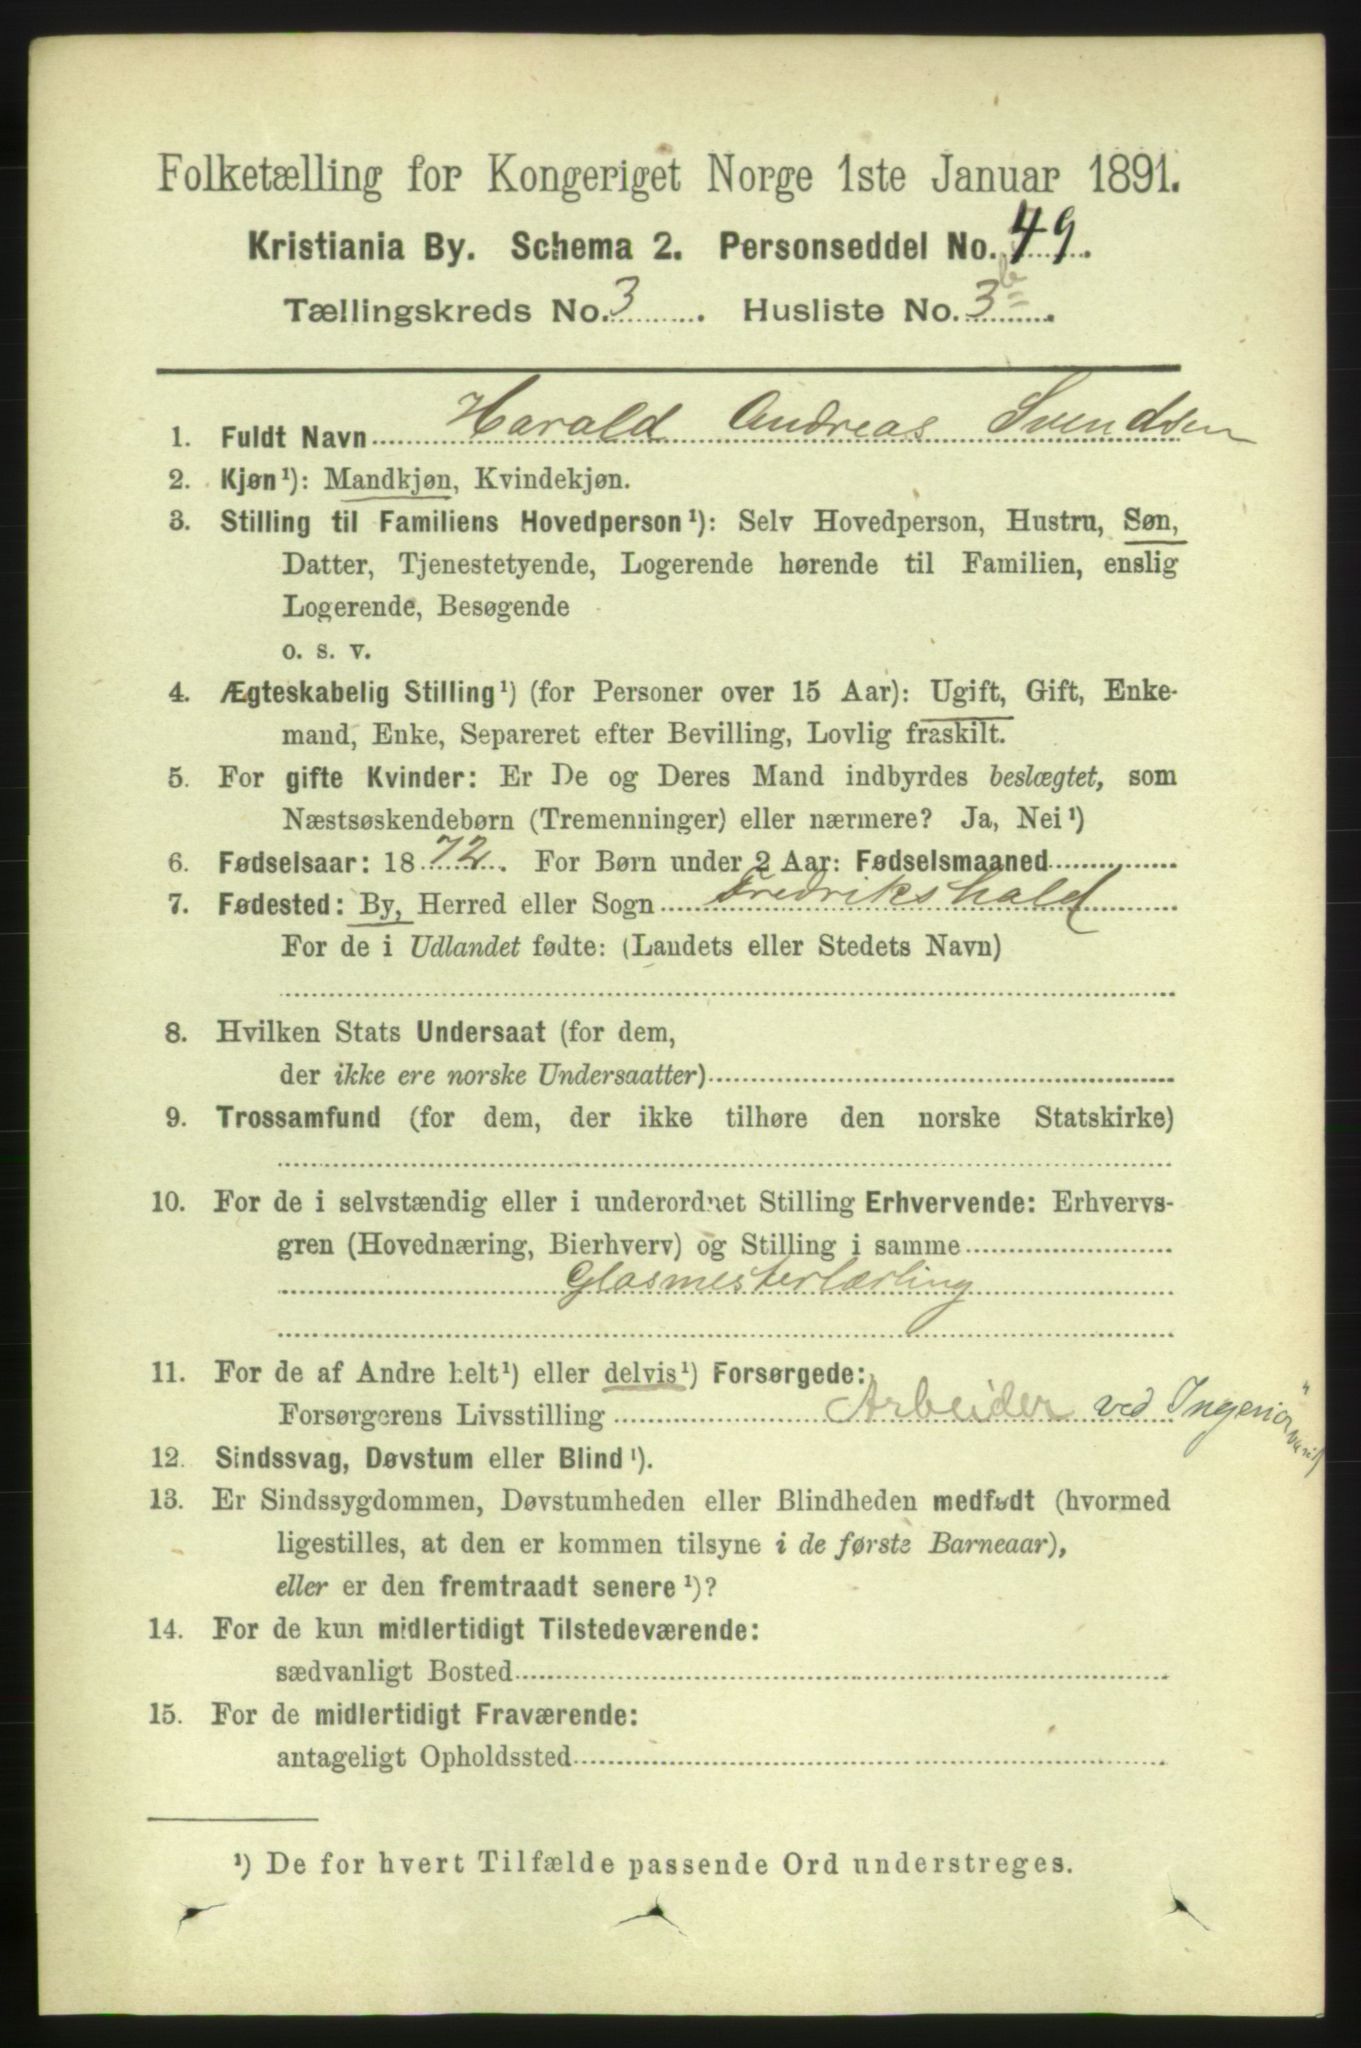 Folketælling for Kongeriget Norge 1ste Januar 1891.
Kristiania By. Schema 2. Personseddel No. 49.
Tællingskreds No. 3. Husliste No. 3b.
1. Fuldt Navn Harald Andreas Svendsen
2. Kjøn¹): Mandkjøn, Kvindekjøn.
3. Stilling til Familiens Hovedperson¹): Selv Hovedperson, Hustru, Søn,
Datter, Tjenestetyende, Logerende hørende til Familien, enslig
Logerende, Besøgende
o. s. v.
4. Ægteskabelig Stilling¹) (for Personer over 15 Aar): Ugift, Gift, Enke-
mand, Enke, Separeret efter Bevilling, Lovlig fraskilt.
5. For gifte Kvinder: Er De og Deres Mand indbyrdes beslægtet, som
Næstsøskendebørn (Tremenninger) eller nærmere? Ja, Nei¹)
6. Fødselsaar: 1872. For Børn under 2 Aar: Fødselsmaaned
7. Fødested: By, Herred eller Sogn Fredrikshald
For de i Udlandet fødte: (Landets eller Stedets Navn)
8. Hvilken Stats Undersaat (for dem,
der ikke ere norske Undersaatter)
9. Trossamfund (for dem, der ikke tilhøre den norske Statskirke)
10. For de i selvstændig eller i underordnet Stilling Erhvervende: Erhvervs-
gren (Hovednæring, Bierhverv) og Stilling i samme
Glasmesterlærling
11. For de af Andre helt¹) eller delvis¹) Forsørgede:
Forsørgerens Livsstilling Arbeider ved Ingeniør
12. Sindssvag, Døvstum eller Blind¹).
13. Er Sindssygdommen, Døvstumheden eller Blindheden medfødt (hvormed
ligestilles, at den er kommen tilsyne i de første Barneaar),
eller er den fremtraadt senere¹)?
14. For de kun midlertidigt Tilstedeværende:
sædvanligt Bosted
15. For de midlertidigt Fraværende:
antageligt Opholdssted
¹) De for hvert Tilfælde passende Ord understreges.